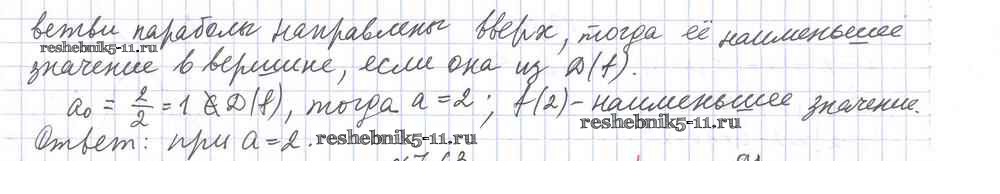 ветви параболы направлены вверх, тогда её наименьшее
reshebnik5-11.ru
значение в вершине, если она из D(f).
a₀ = 2/2 = 1 ∉ D(f), тогда a = 2; f(2) - наименьшее значение.
reshebnik5-11.ru
Ответ: при a = 2.
reshebnik5-11.ru